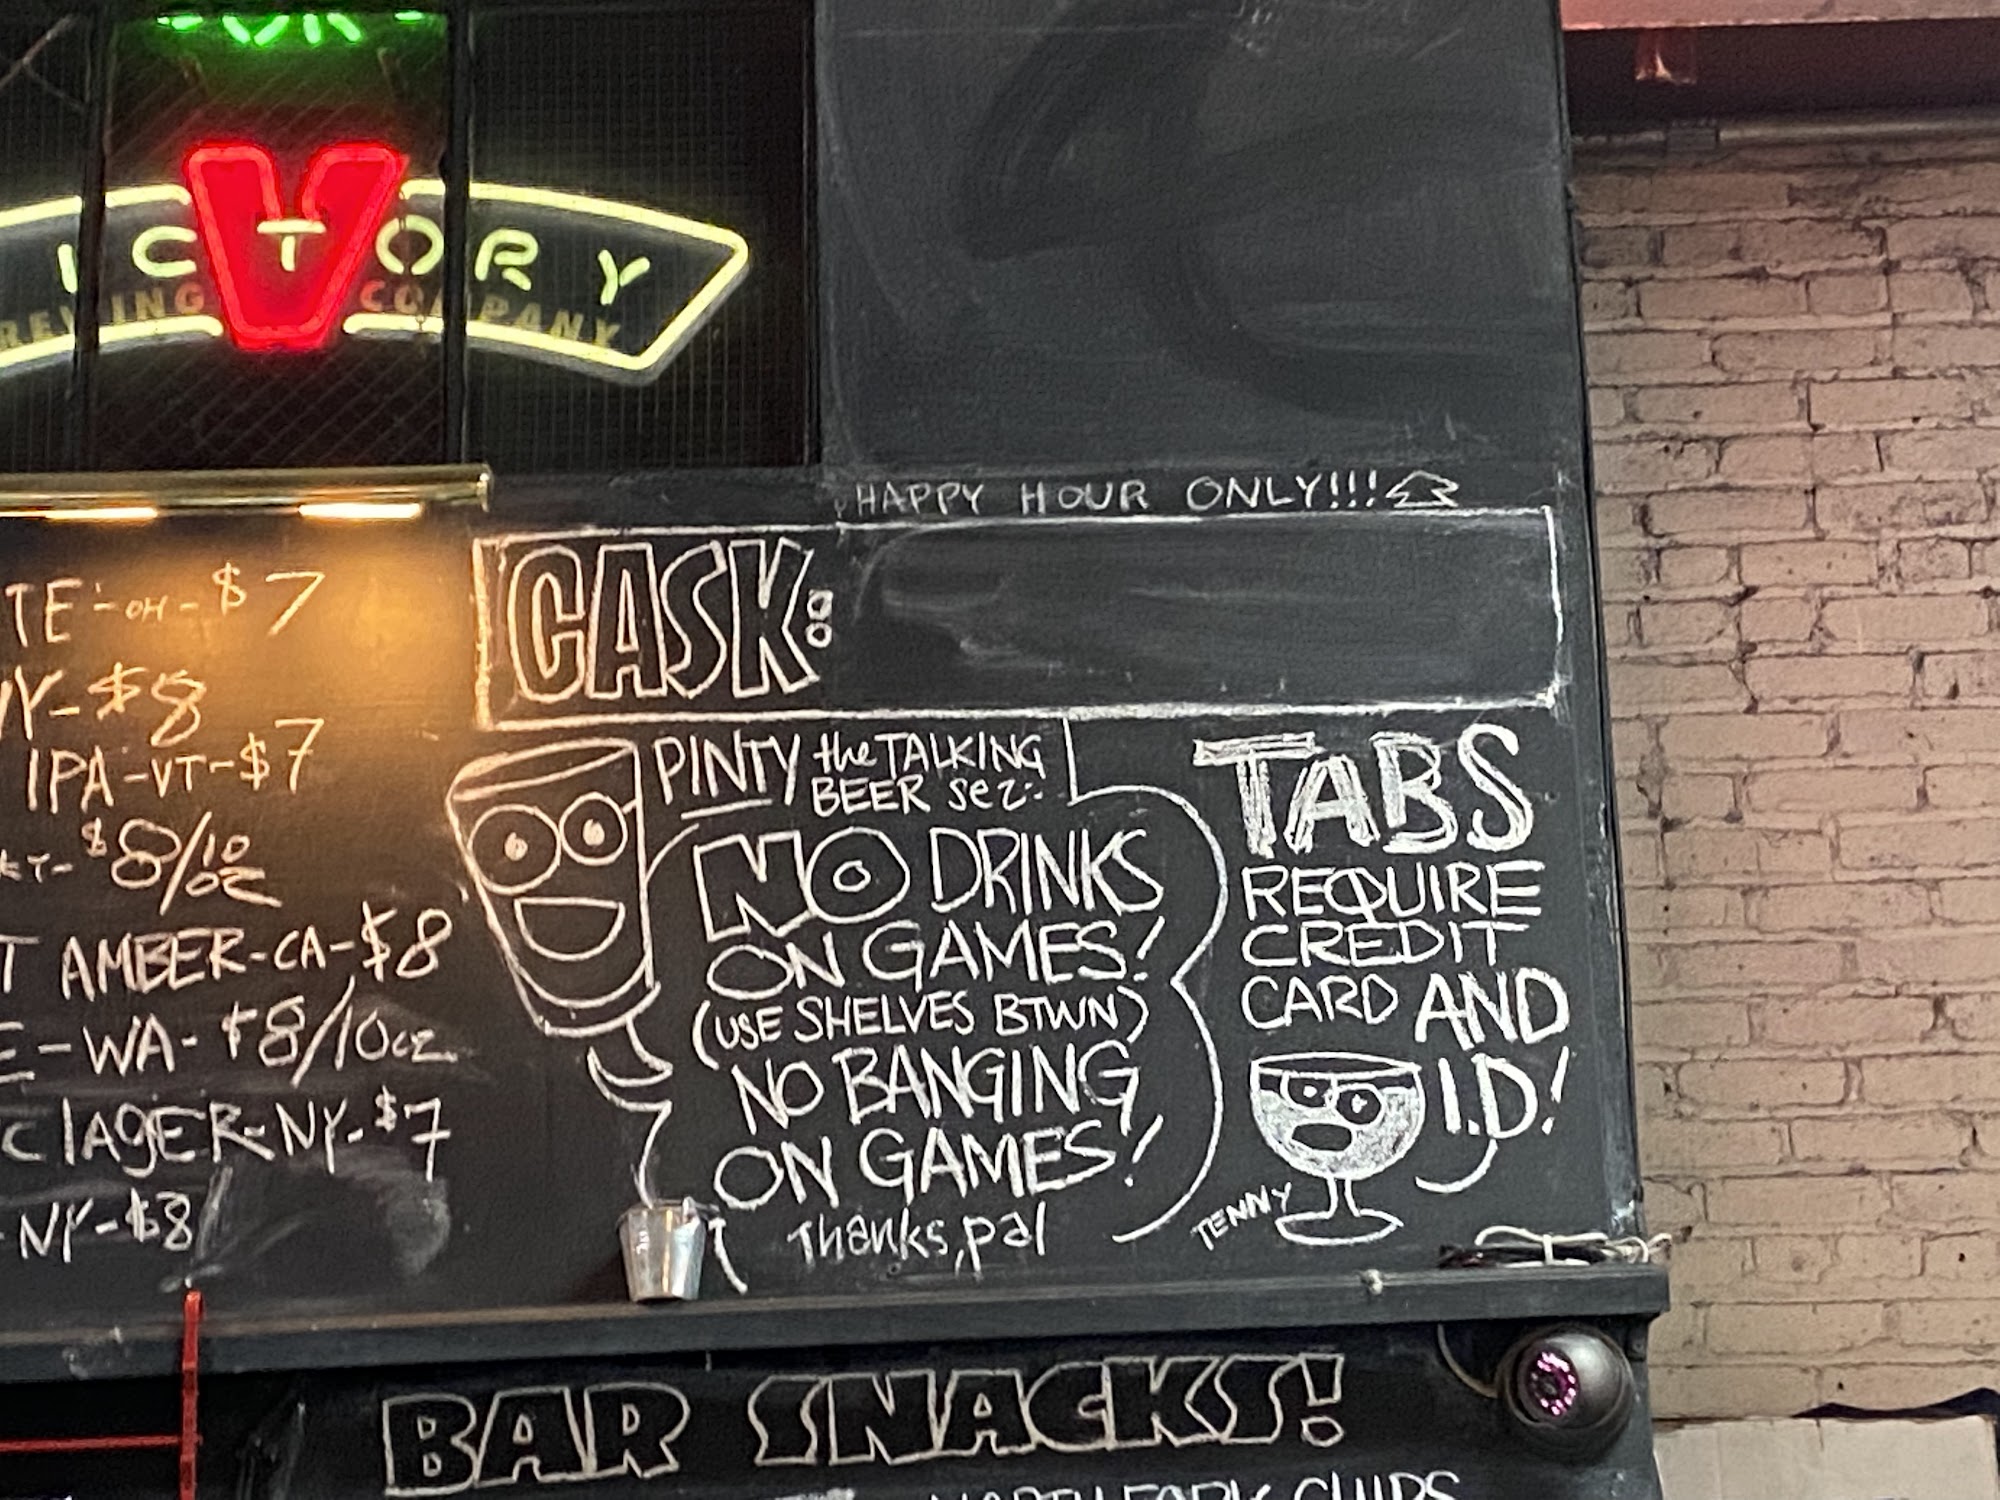 VICTORY
BREWING COMPANY
HAPPY HOUR ONLY!!!
CASK:
TE - OH - $7
NY - $8
IPA - VT - $7
KY - $8/10 oz
T AMBER - CA - $8
E - WA - $8/10oz
C LAGER - NY - $7
- NY - $8
PINTY the TALKING
BEER sez:
NO DRINKS
ON GAMES!
(USE SHELVES BTWN)
NO BANGING
ON GAMES!
Thanks, pal
TABS
REQUIRE
CREDIT
CARD AND
I.D!
TENNY
BAR SNACKS!
NORTH FORK CHIPS